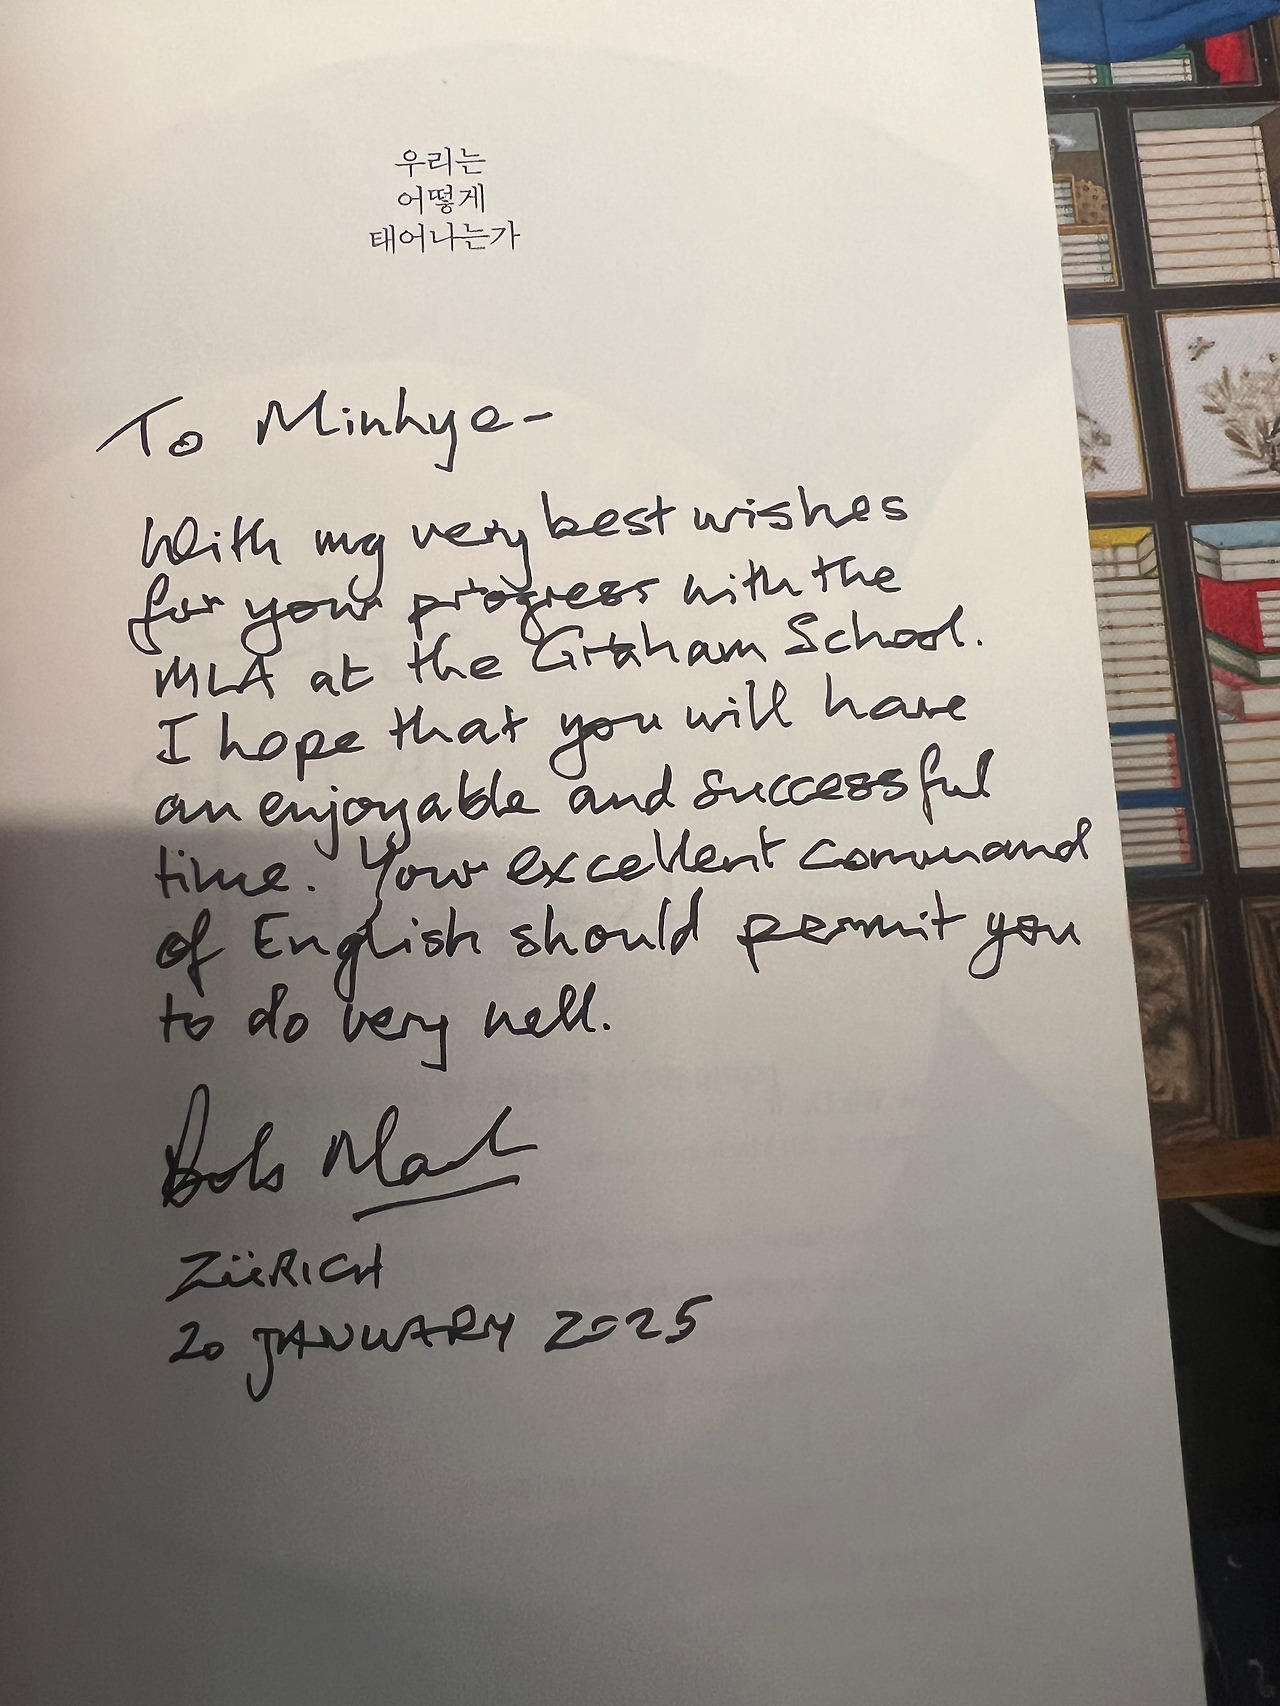 우리는
어떻게
태어나는가
To Minhye-
With my very best wishes
for your progress with the
MLA at the Graham School.
I hope that you will have
an enjoyable and successful
time. Your excellent command
of English should permit you
to do very well.
Bob
ZÜRICH
20 JANUARY 2025